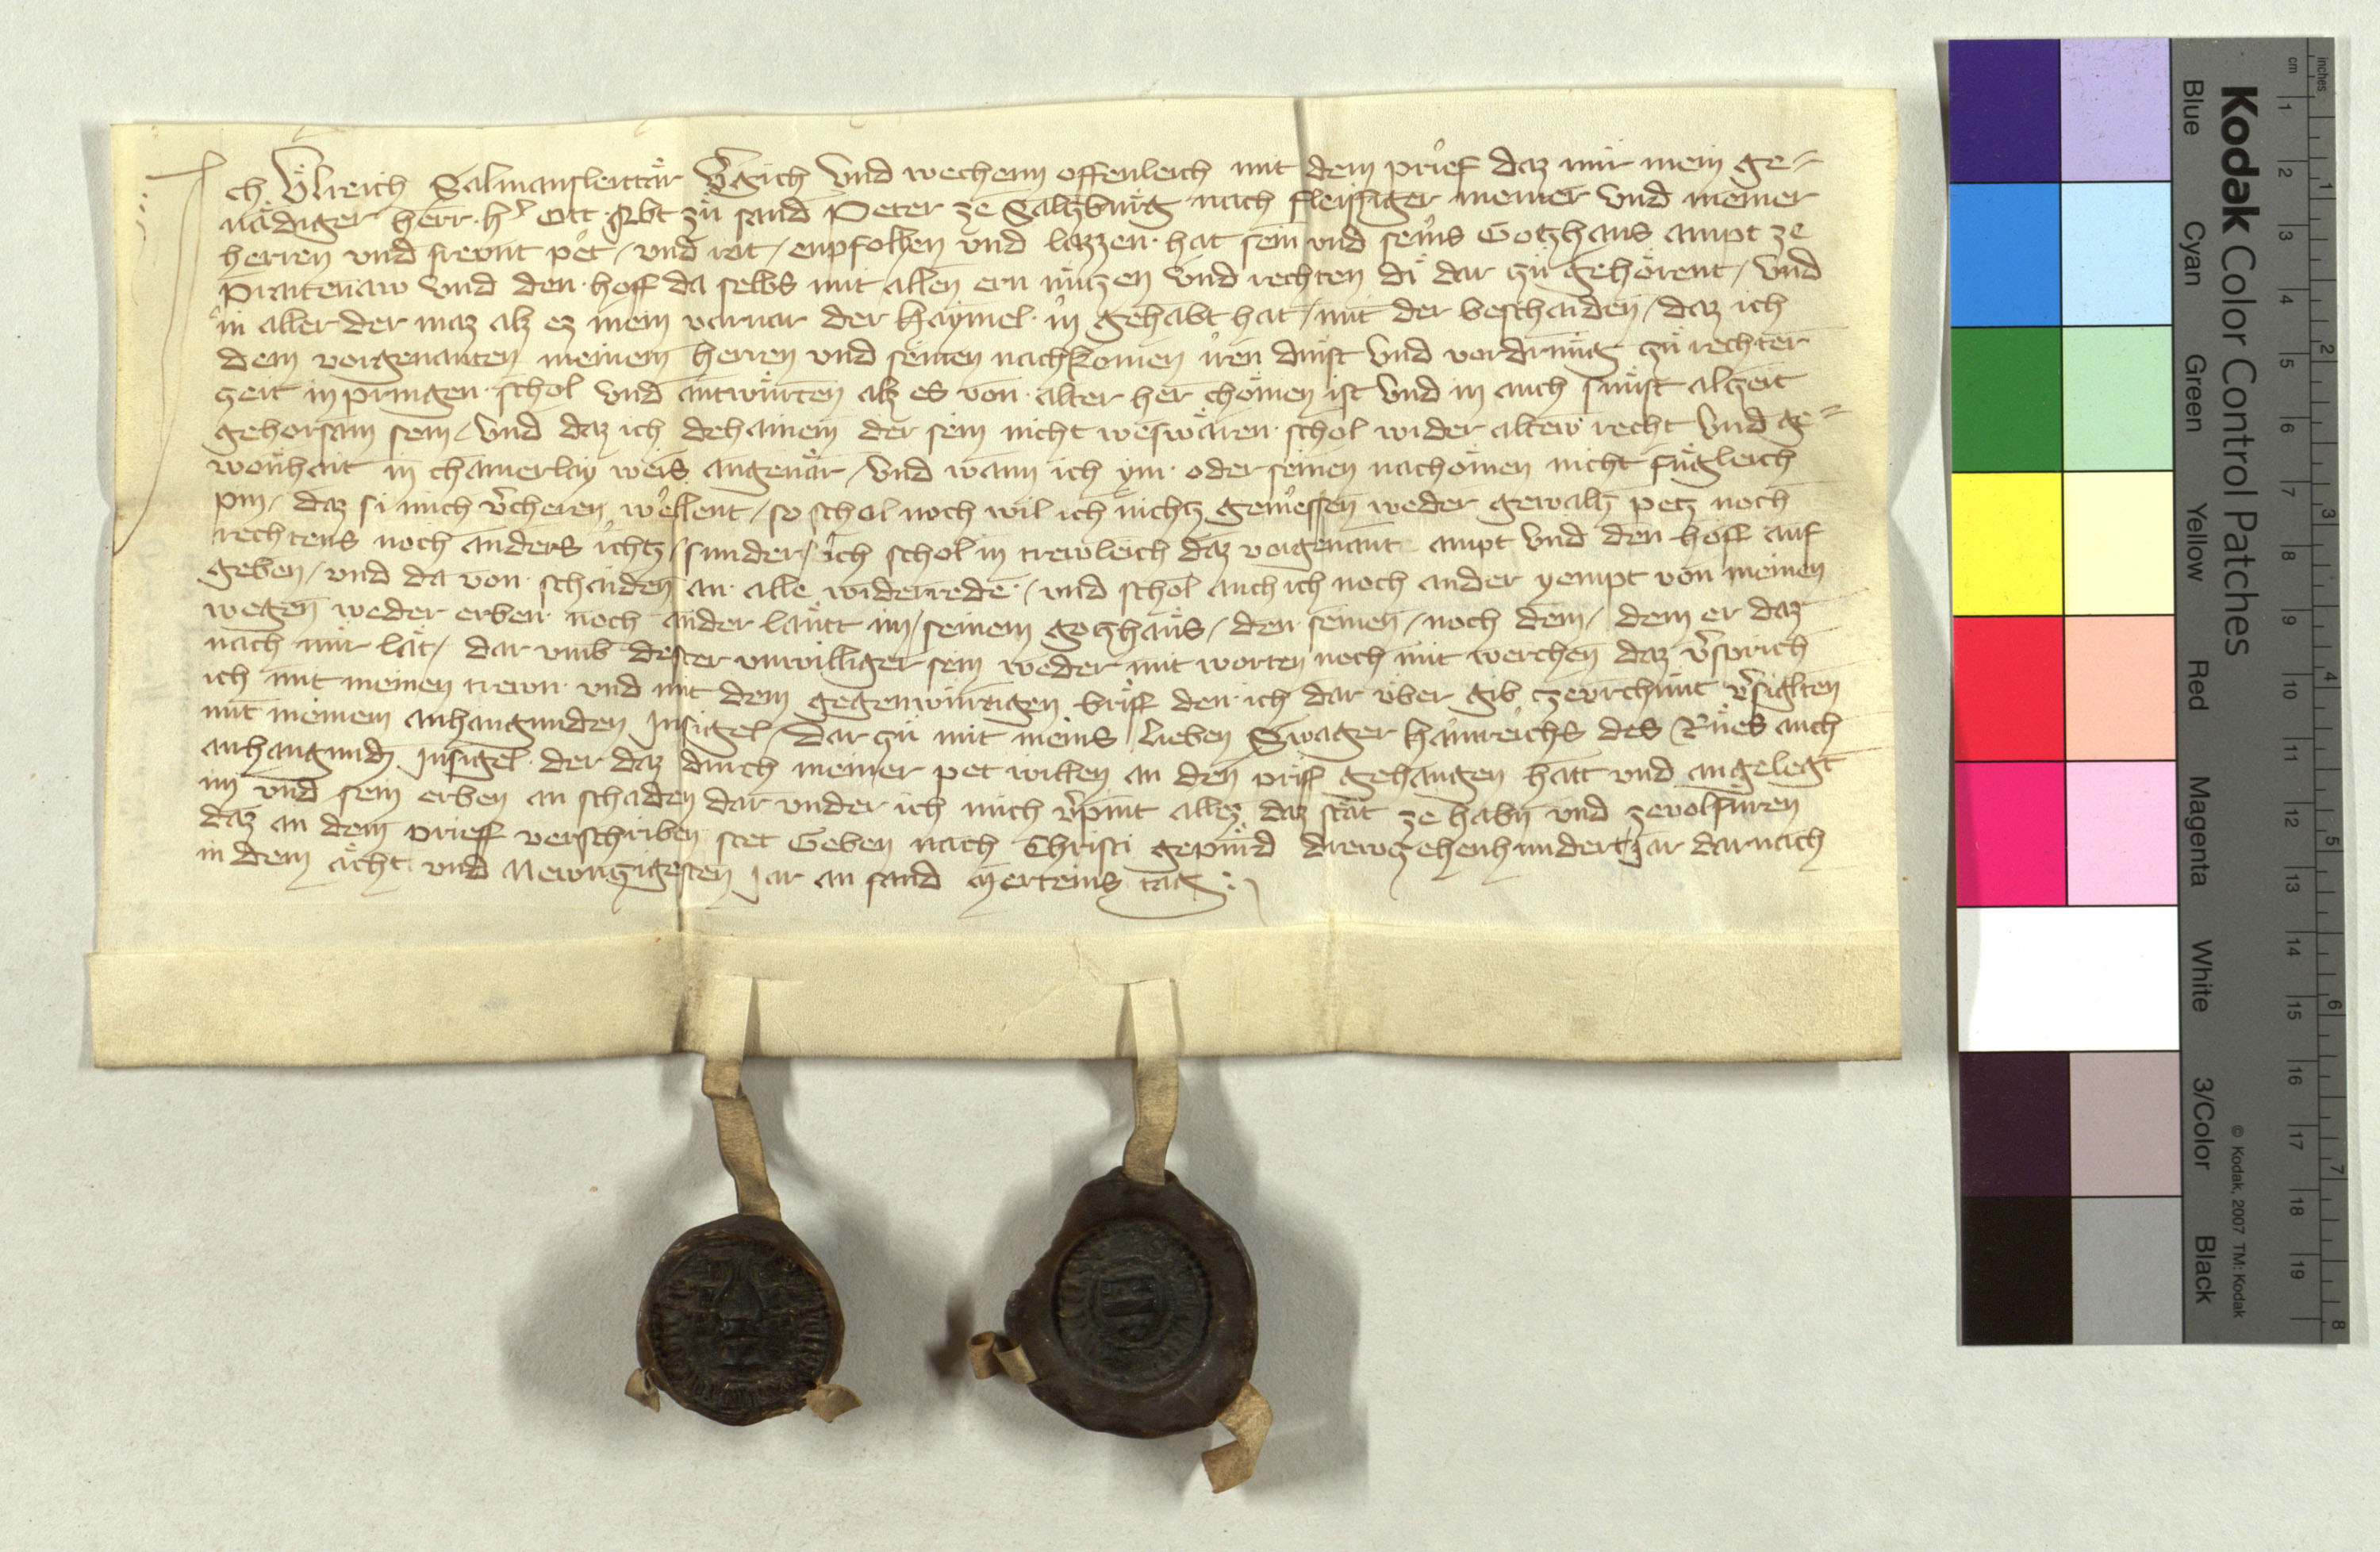 Ich Ůlreich Salmansleittär v̓gich Und wechenn offenleich mit dem prief daz mir mein ge=
nädiger herr h̓ Ott Abt zů sand Peter ze Saltzburg nach fleissiger meiner und meiner
herren und frewnt pet / und rat / enpfolhen und lazzen hat sein und seins Gotzhaus ampt ze
Praitenaw Und den hoff da selbs mit allen ern nützen Und rechten di dar zů gehörent / Und
in aller der maz alz ez mein varnar der Haymel in gehabt hat / mit der beschaiden / daz ich
dem vorgenanten meinem herren und seinen nachkomen iren dinst Und vordrung zů rechter
zeit inpringen schol Und antwürten alz es von alter her chömen ist Und in auch sunst alzeit
gehorsam sein / Und daz ich dehainem der sein nicht weswären schol wider altew recht Und ge=
wonhait in chainerlay weis angevär / Und wann ich ym oder seinen nachömen nicht fügleich
pin / daz si mich v̓cheren wellent / so schol noch wil ich nichtz geniessen weder gewaltz petz noch
rechtens noch anders ichtz / sunder / ich schol in trewleich daz vorgenant ampt Und den hoff auf
geben / und da von schaiden an alle widerrede / und schol auch ich noch ander yempt von meinen
wegen weder erben noch ander läutt im / seinem gotzhaus / den seinen / noch dem / dem er daz
nach mir lät / dar umb dester unwilliger sein weder mit worten noch mit werchen daz v̓sprich
ich mit meinen trewn und mit dem gegenwürtigen briff den ich dar über gib ze urchunt v̓siglten
mit meinem anhangunden Insigel / Dar zü mit meins lieben Swager Hainreichs des Rües auch
anhangundz Insigel der daz durch meiner pet willen an den priff gehangen hatt und angelegt
im und sein erben an schaden dar under ich mich v̓pint allez daz stät ze habn und ze volfüren
daz an dem prieff verschriben stet Geben nach Christi gepurd drewzehenhundert Jar darnach
in dem ächt und Newnzigesten Jar an sand Merteins tag

Kodak Color Control Patches
Blue Cyan Green Yellow Red Magenta White 3/Color Black
© Kodak, 2007 TM: Kodak
inches 1 2 3 4 5 6 7 8
cm 1 2 3 4 5 6 7 8 9 10 11 12 13 14 15 16 17 18 19